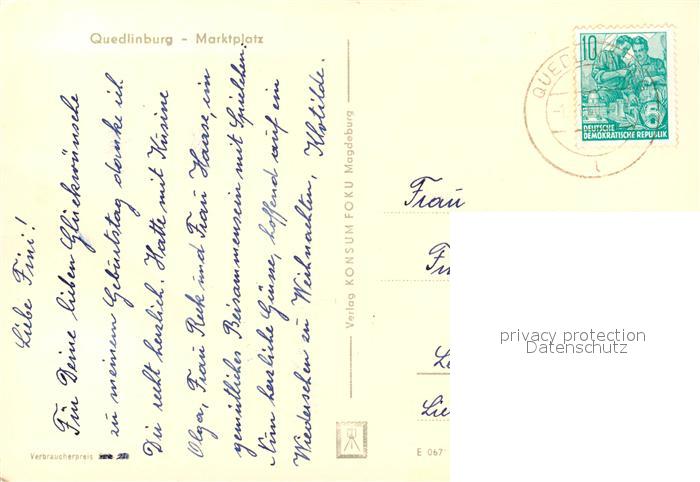 Quedlinburg - Marktplatz
Liebe Fini!
Für Deine lieben Glückwünsche
zu meinem Geburtstag danke ich
Dir recht herzlich. Hatte mit Kusine
Olga, Frau Reek und Frau Haase, ein
gemütliches Beisammensein mit Spielchen.
Nim herzliche Grüsse, hoffend auf ein
Wiedersehen zu Weihnachten, Klotilde.
Verbraucherpreis
Verlag KONSUM FOKU Magdeburg
E 067
10
DEUTSCHE
DEMOKRATISCHE REPUBLIK
QUEDL
Frau
privacy protection
Datenschutz